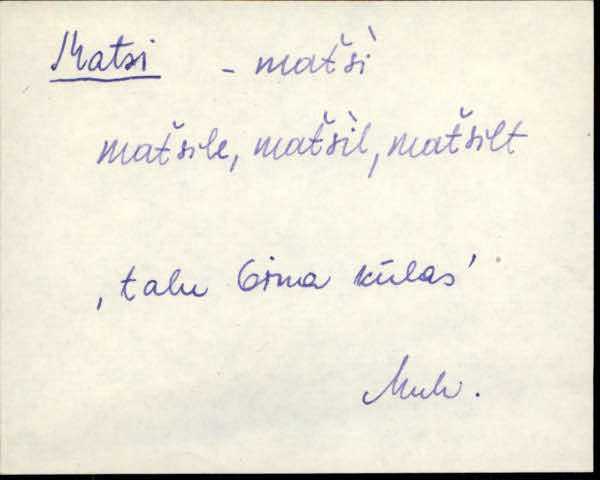 Matsi - mat̆s̀i
mat̆sile, mat̆s̀il, mat̆silt
, talu Oina külas'
Muh.